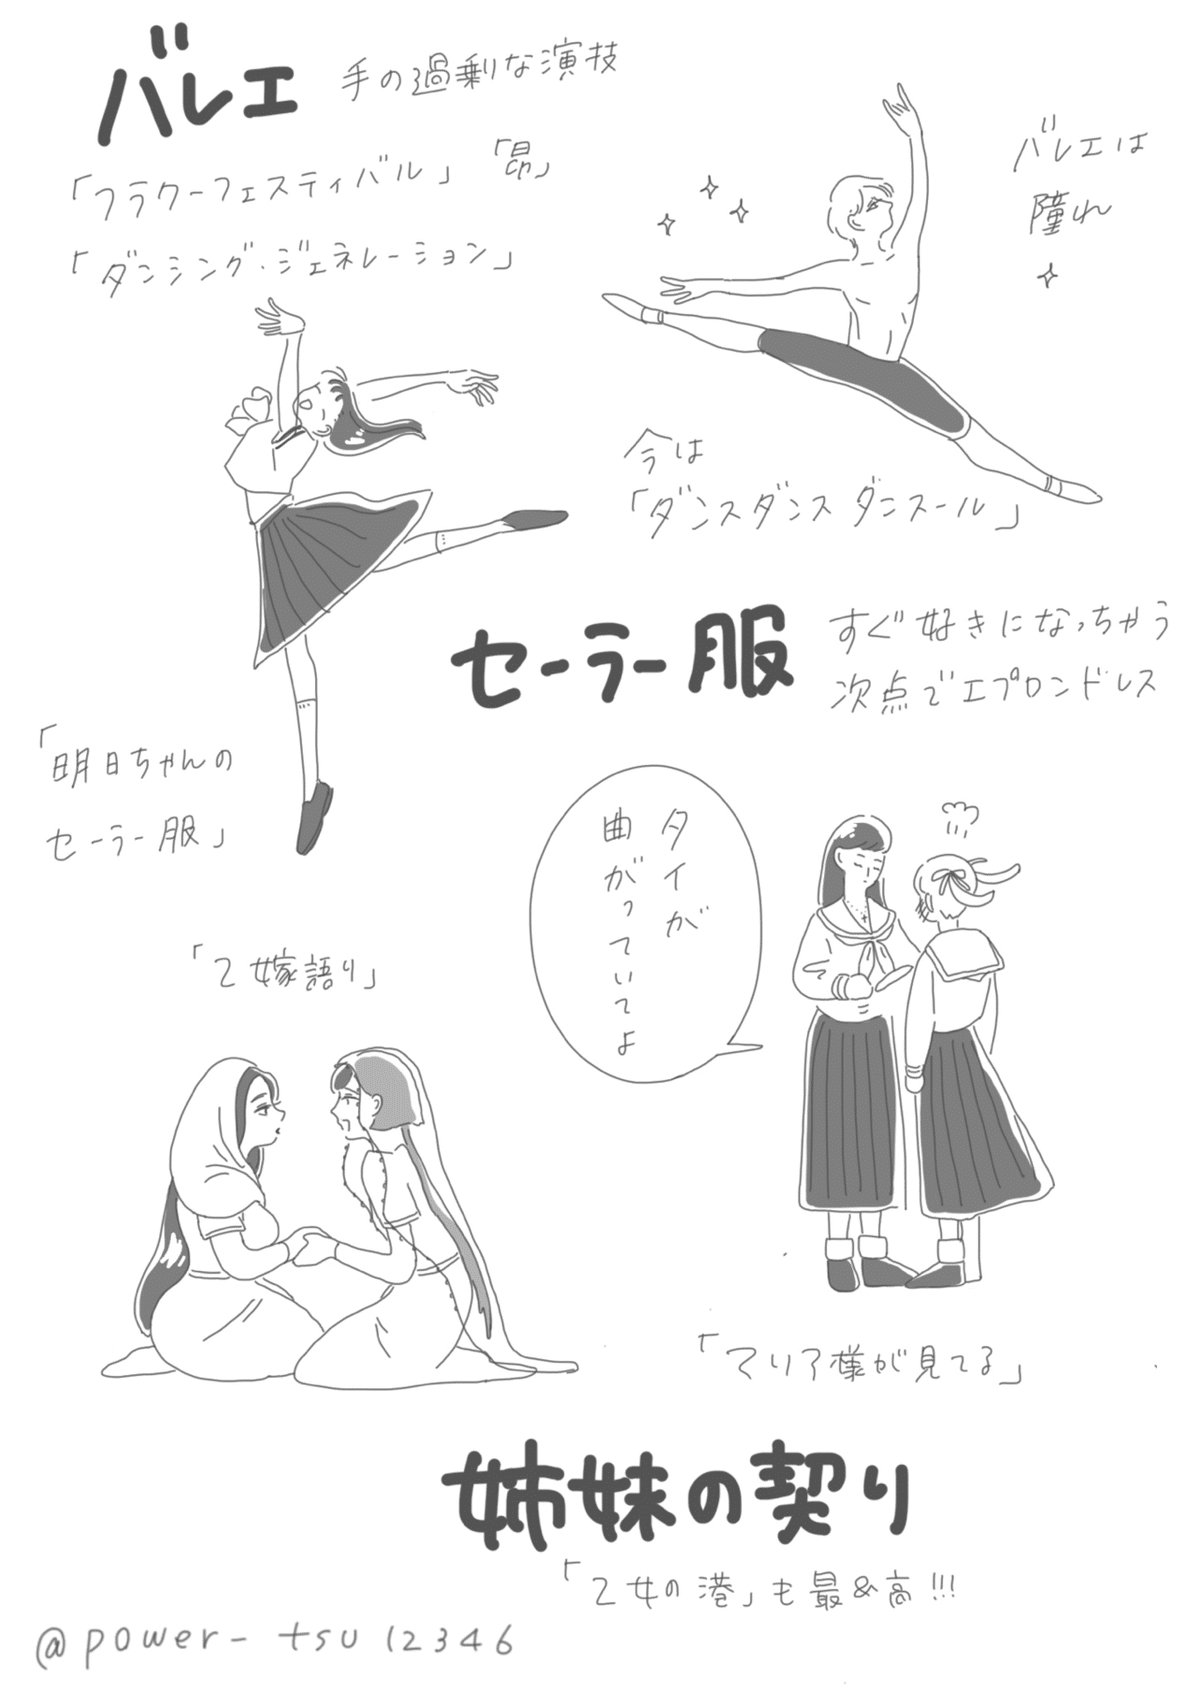 バレエ
手の過剰な演技
「フラワーフェスティバル」「昴」
「ダンシング・ジェネレーション」
バレエは
憧れ
今は
「ダンスダンスダンスール」
セーラー服
すぐ好きになっちゃう
次点でエプロンドレス
「明日ちゃんの
セーラー服」
タイが
曲がっていてよ
「乙嫁語り」
「マリア様が見てる」
姉妹の契り
「乙女の港」も最&高!!!
@power-tsu12346